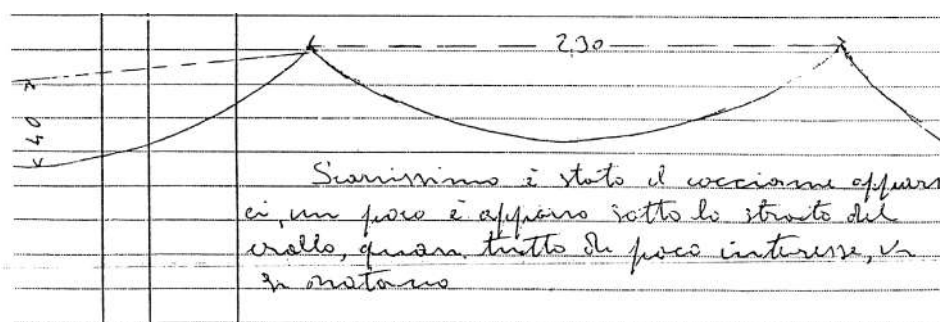 2,30
40
Scarsissimo è stato il cocciame appars
ci, un poco è apparso sotto lo strato del
crollo, quasi tutto di poco interesse, v
si notano